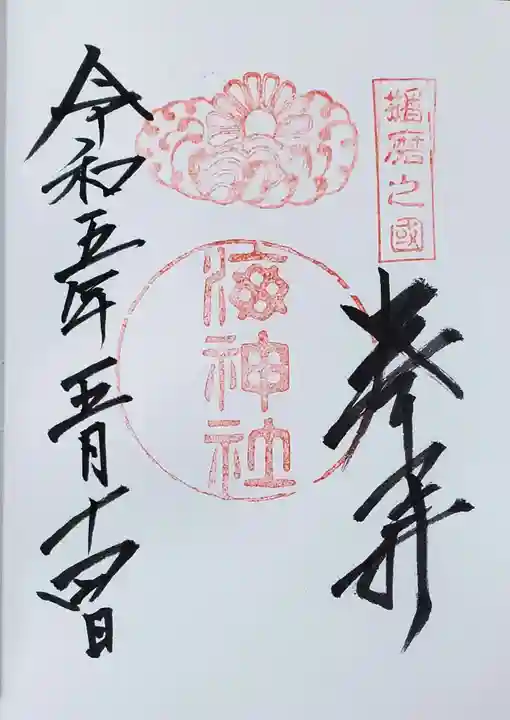 播磨之國
奉拝
海神社
令和五年五月十四日